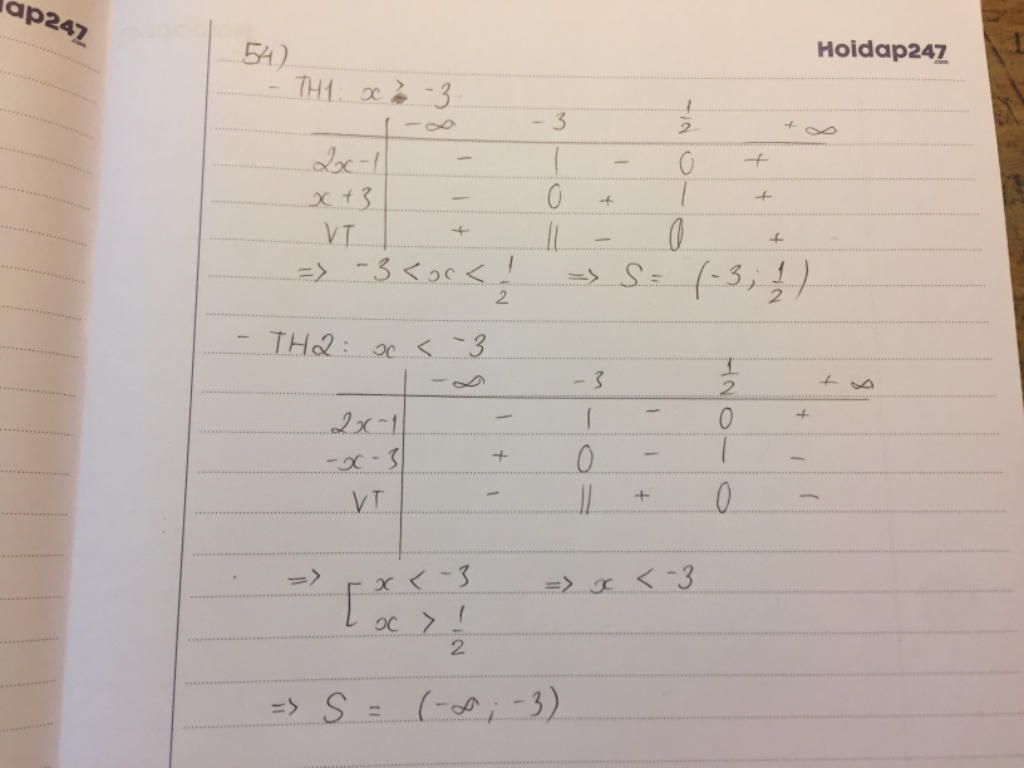 ap247
.com
Hoidap247
.com
54)
- TH1: x > -3
-∞ -3 1/2 +∞
2x-1 - | - 0 +
x+3 - 0 + | +
VT + || - 0 +
=> -3 < x < 1/2 => S = (-3; 1/2)
- TH2: x < -3
-∞ -3 1/2 +∞
2x-1 - | - 0 +
-x-3 + 0 - | -
VT - || + 0 -
=> [ x < -3 => x < -3
x > 1/2
=> S = (-∞; -3)